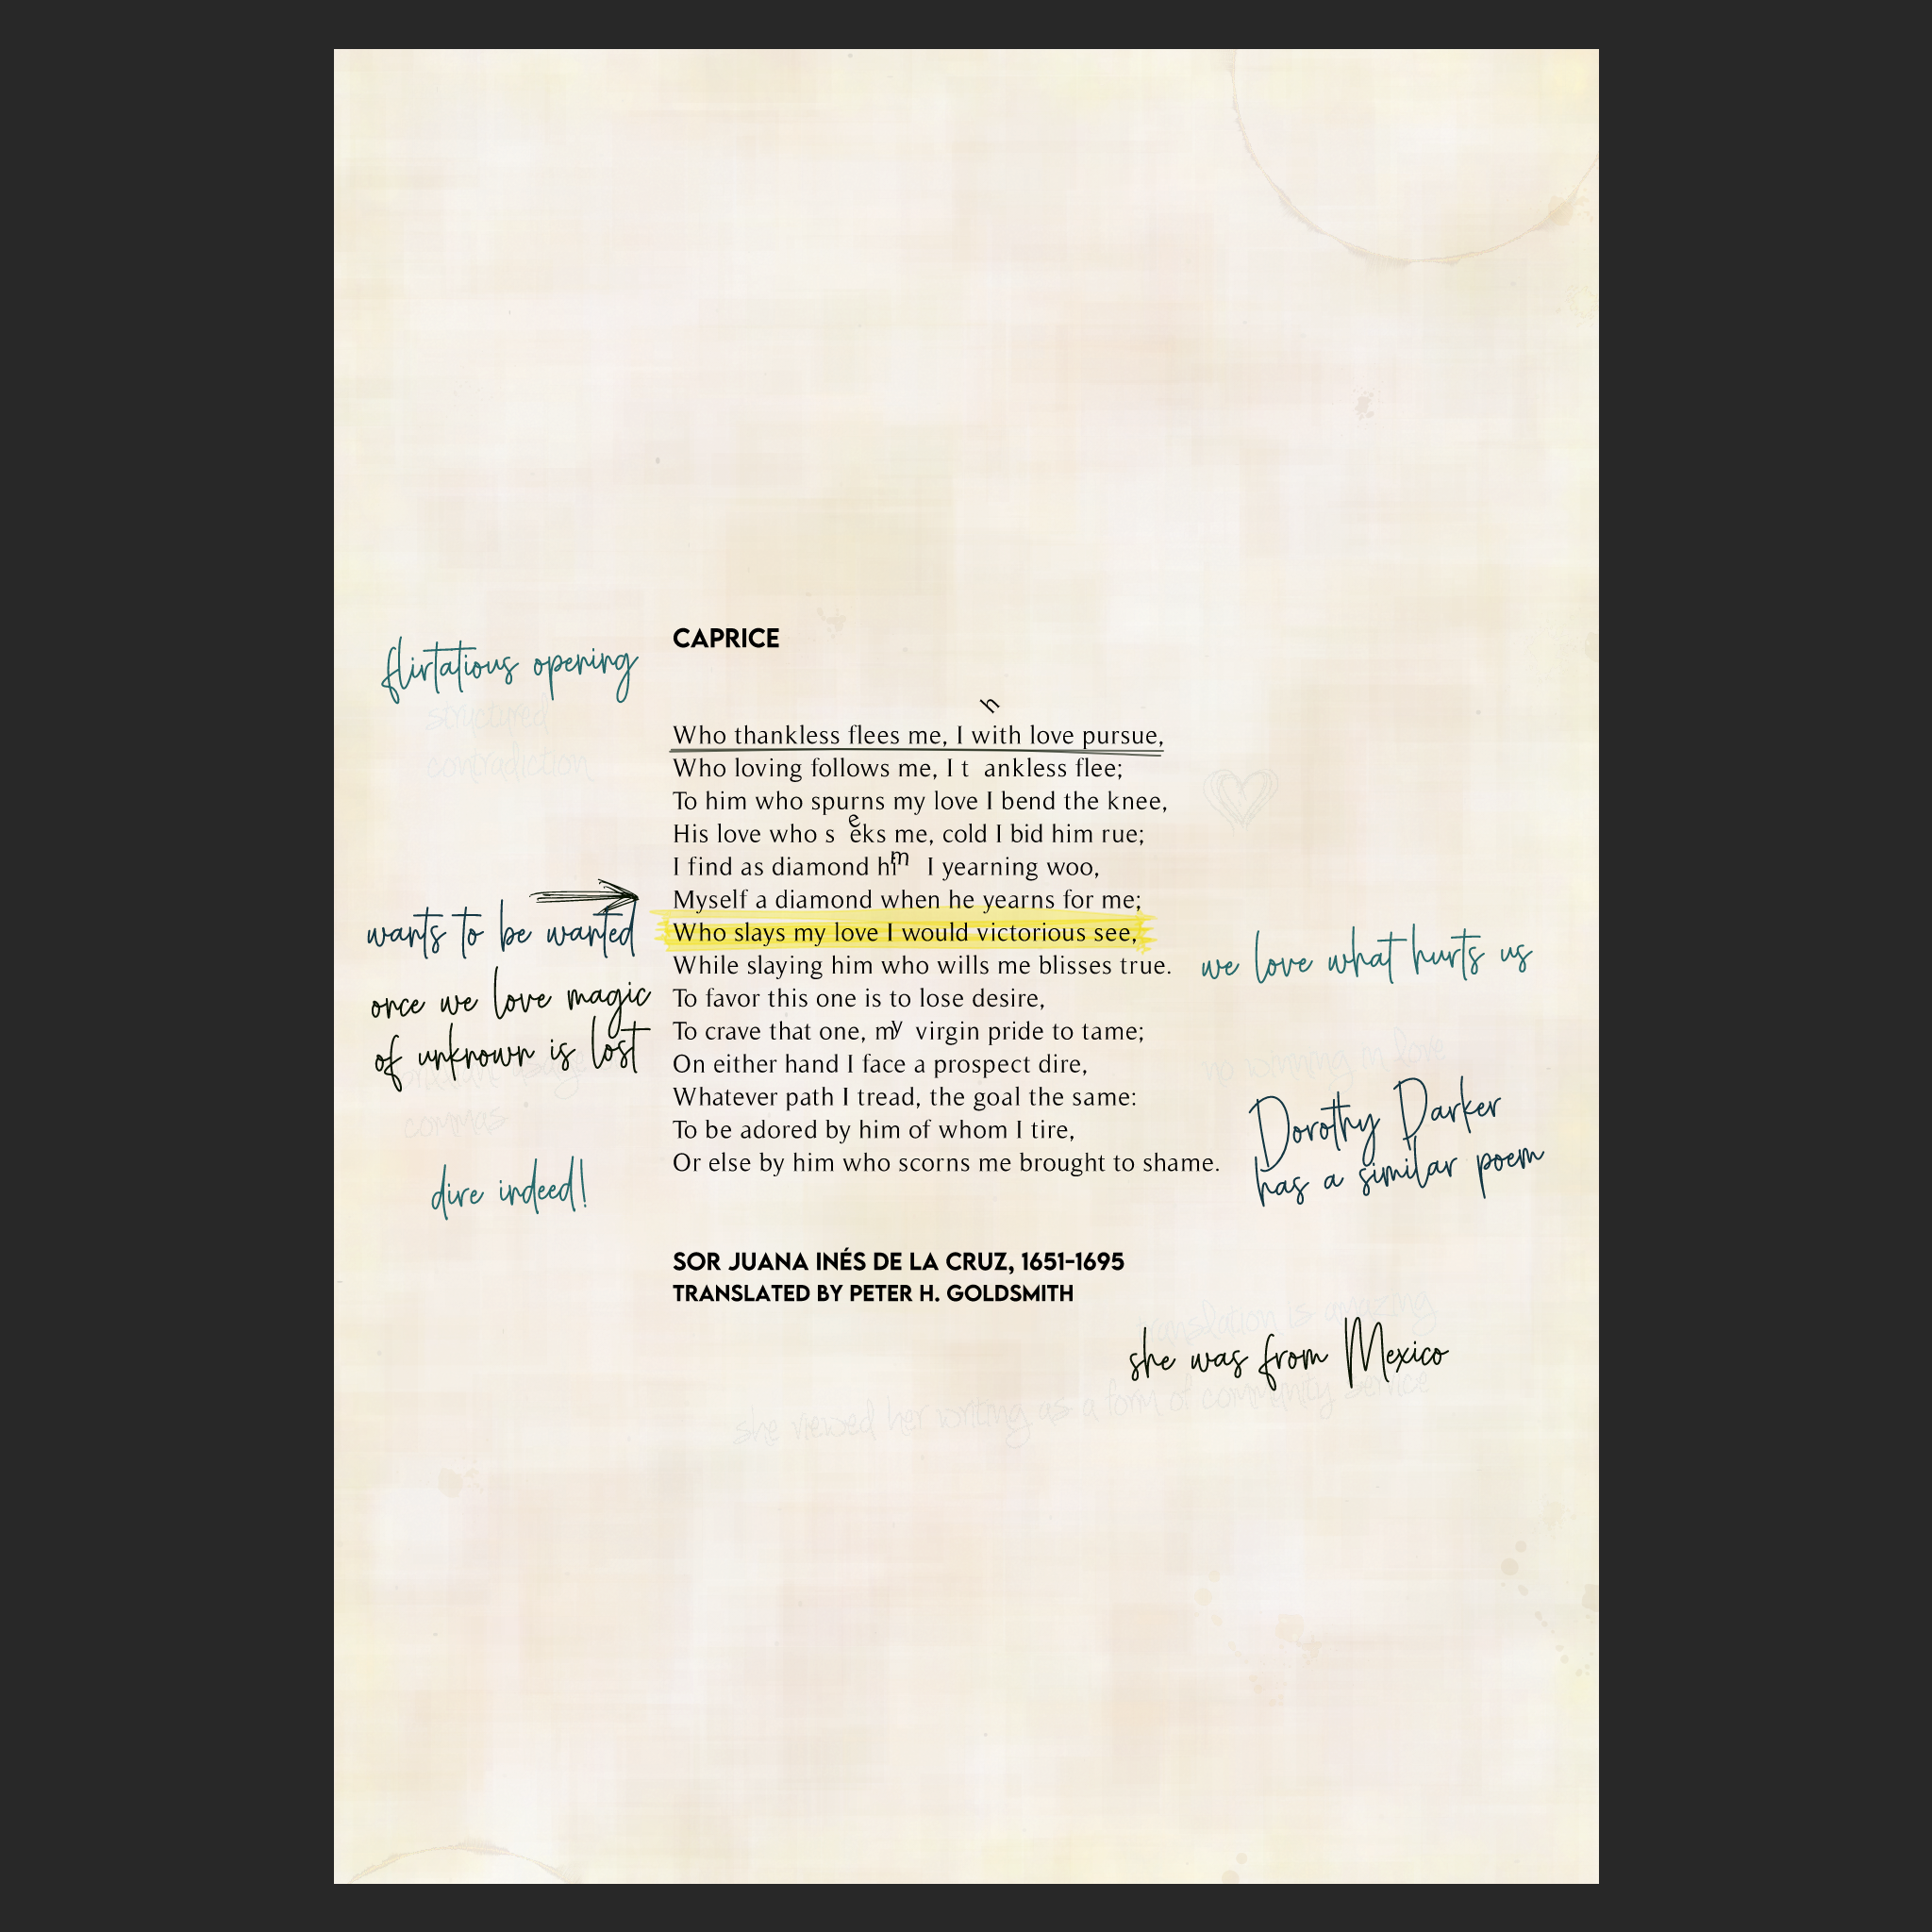 CAPRICE
flirtatious opening
structured
contradiction
h
Who thankless flees me, I with love pursue,
Who loving follows me, I t ankless flee;
To him who spurns my love I bend the knee,
His love who s eeks me, cold I bid him rue;
I find as diamond him I yearning woo,
Myself a diamond when he yearns for me;
Who slays my love I would victorious see,
While slaying him who wills me blisses true.
To favor this one is to lose desire,
To crave that one, my virgin pride to tame;
On either hand I face a prospect dire,
Whatever path I tread, the goal the same:
To be adored by him of whom I tire,
Or else by him who scorns me brought to shame.
wants to be wanted
once we love magic
of unknown is lost
commas
dire indeed!
we love what hurts us
no winning in love
Dorothy Parker
has a similar poem
SOR JUANA INÉS DE LA CRUZ, 1651-1695
TRANSLATED BY PETER H. GOLDSMITH
translation is amazing
she was from Mexico
she viewed her writing as a form of community service